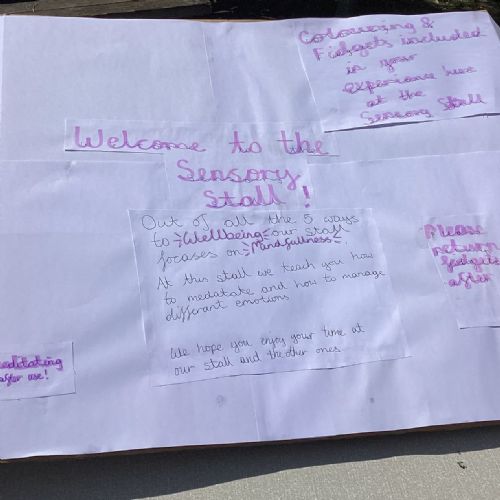 Colouring &
Fidgets included
in your
experience here
at the
Sensory Stall
Welcome to the
Sensory
Stall !
Out of all the 5 ways
to Wellbeing our stall
focases on Mindfullness.
At this stall we teach you how
to medatate and how to manage
differant emotions
We hope you enjoy your time at
our stall and the other ones
Please
return
fidgets
after
editating
after use!